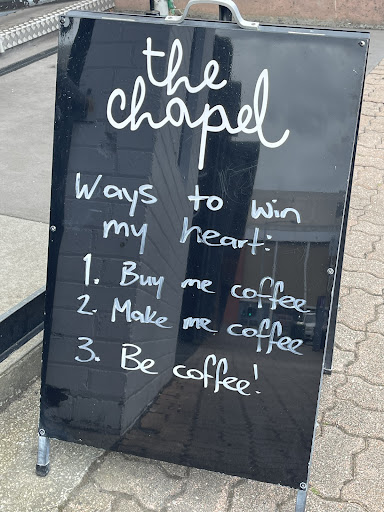 the
chapel
Ways to win
my heart:
1. Buy me coffee
2. Make me coffee
3. Be coffee!